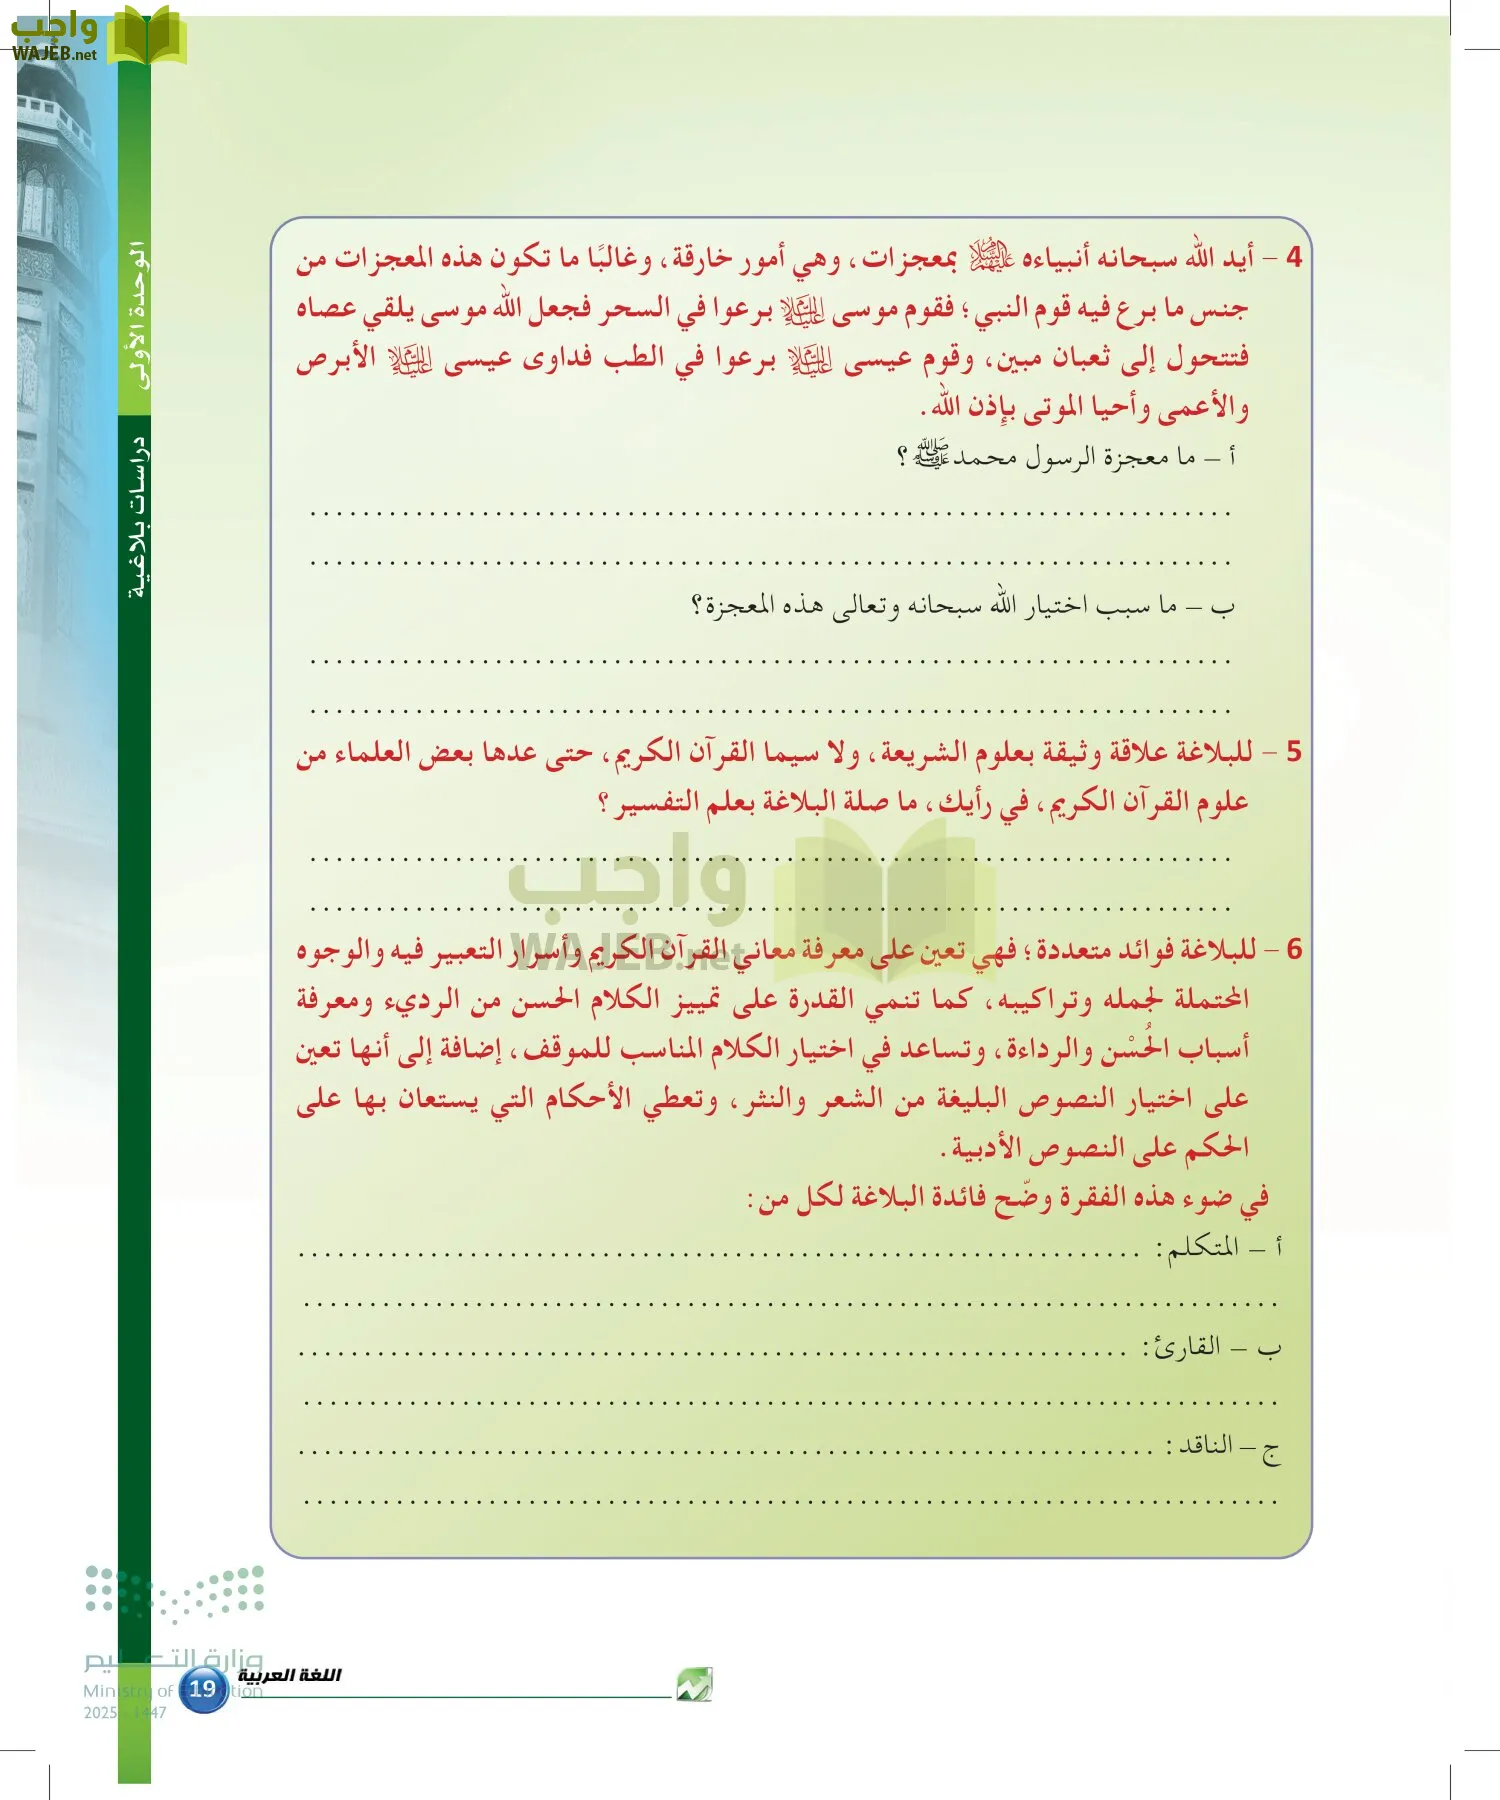 واجب
WAJEB.net
الوحدة الأولى
دراسات بلاغية
4 – أيد الله سبحانه أنبياءه عليهم السلام بمعجزات، وهي أمور خارقة، وغالبًا ما تكون هذه المعجزات من
جنس ما برع فيه قوم النبي؛ فقوم موسى عليه السلام برعوا في السحر فجعل الله موسى يلقي عصاه
فتتحول إلى ثعبان مبين، وقوم عيسى عليه السلام برعوا في الطب فداوى عيسى عليه السلام الأبرص
والأعمى وأحيا الموتى بإذن الله.
أ – ما معجزة الرسول محمد ﷺ؟
ب – ما سبب اختيار الله سبحانه وتعالى هذه المعجزة؟
5 – للبلاغة علاقة وثيقة بعلوم الشريعة، ولا سيما القرآن الكريم، حتى عدها بعض العلماء من
علوم القرآن الكريم، في رأيك، ما صلة البلاغة بعلم التفسير؟
واجب
WAJEB.net
6 – للبلاغة فوائد متعددة؛ فهي تعين على معرفة معاني القرآن الكريم وأسرار التعبير فيه والوجوه
المحتملة لجمله وتراكيبه، كما تنمي القدرة على تمييز الكلام الحسن من الرديء ومعرفة
أسباب الحُسْن والرداءة، وتساعد في اختيار الكلام المناسب للموقف، إضافة إلى أنها تعين
على اختيار النصوص البليغة من الشعر والنثر، وتعطي الأحكام التي يستعان بها على
الحكم على النصوص الأدبية.
في ضوء هذه الفقرة وضّح فائدة البلاغة لكل من:
أ – المتكلم:
ب – القارئ:
ج – الناقد:
وزارة التعليم
Ministry of Education
2025 - 1447
19
اللغة العربية